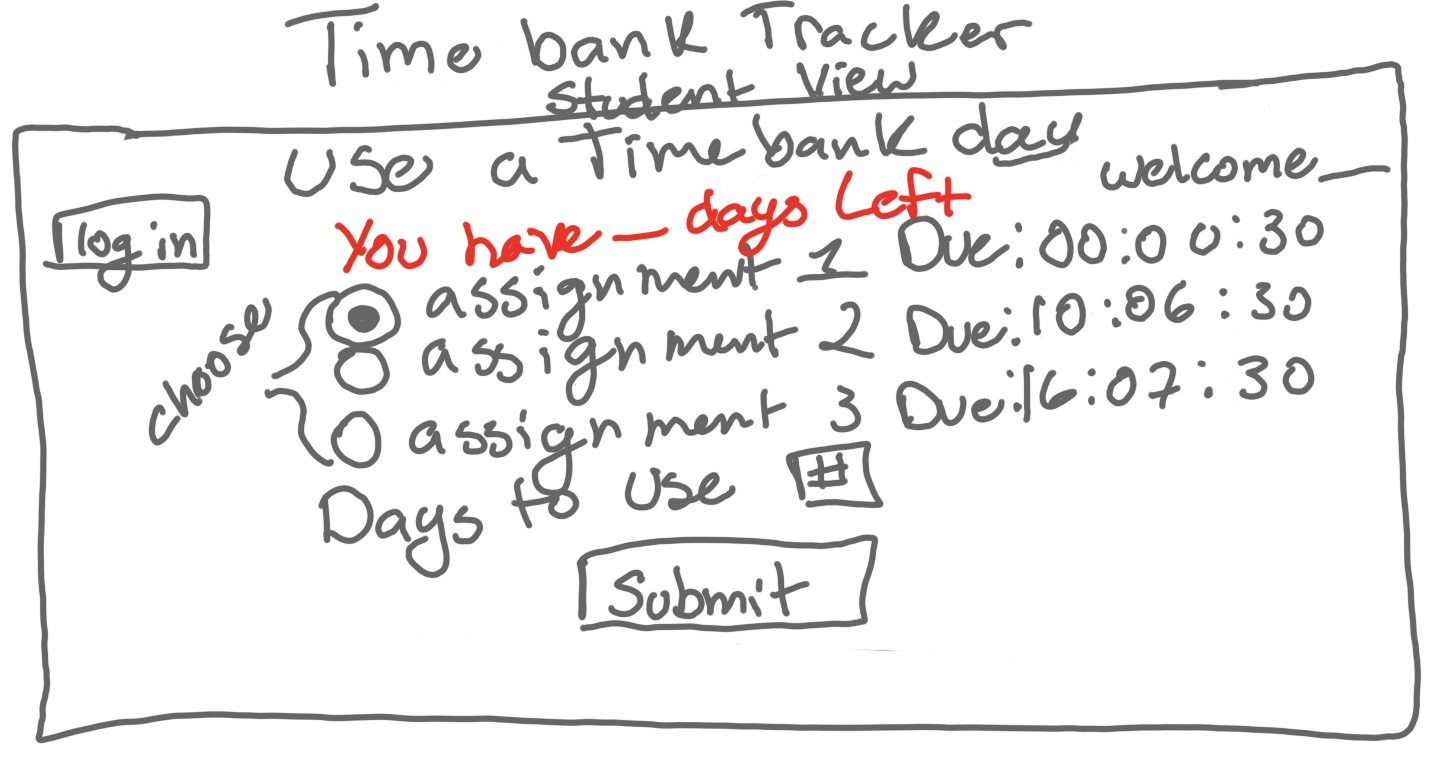 Time bank Tracker
Student View
Use a Timebank day
welcome __
log in
You have __ days Left
choose
assignment 1 Due: 00:00:30
assignment 2 Due: 10:06:30
assignment 3 Due: 16:07:30
Days to use #
Submit